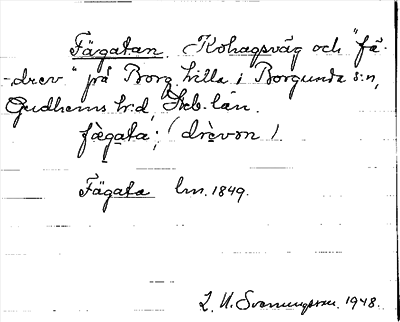 Fägatan. Kohagsväg och "fä-
-drev" på Borg. kvilla i Borgunda s:n,
Gudhems h:d, Skb. län.
fägata; (drèvon)
Fägata lm. 1849.
L. H. Svenungsson. 1948.